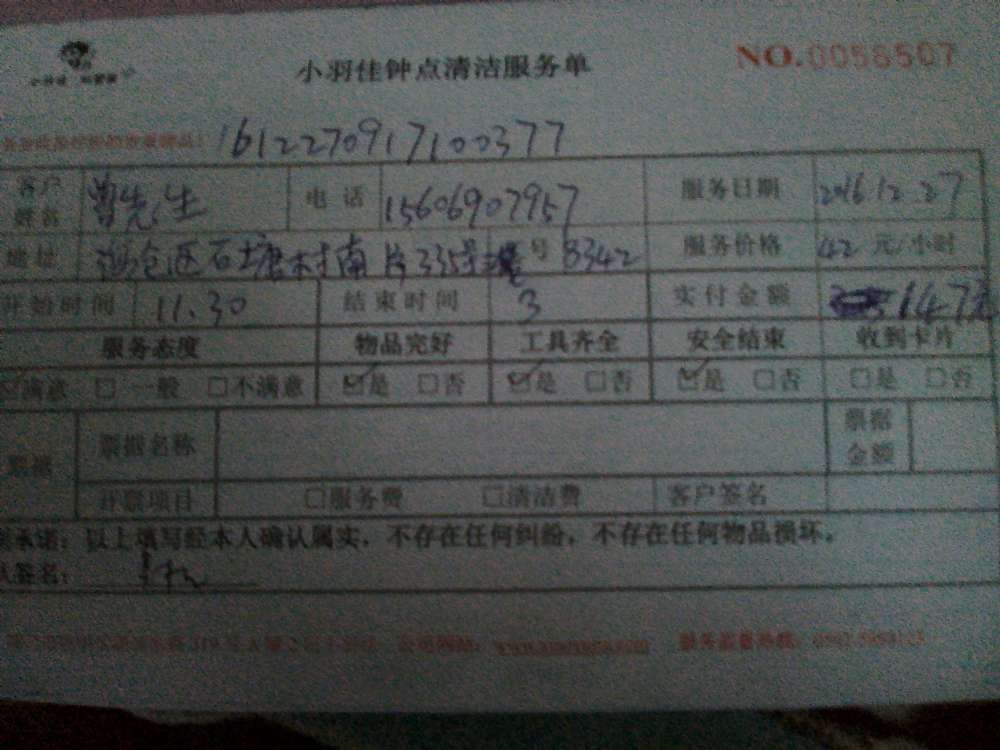 小羽佳钟点清洁服务单
NO.0056507
1612270917100377
客户姓名 曾先生 电话 15606907957 服务日期 2016.12.27
地址 海沧区石塘村南片335号 号 8342 服务价格 42 元/小时
开始时间 11.30 结束时间 3 实付金额 147元
服务态度 物品完好 工具齐全 安全结束 收到卡片
满意 □一般 □不满意 ☑是 □否 ☑是 □否 ☑是 □否 □是 □否
票据 票据名称 票据金额
开票项目 □服务费 □清洁费 客户签名
承诺：以上填写经本人确认属实，不存在任何纠纷，不存在任何物品损坏。
签名：